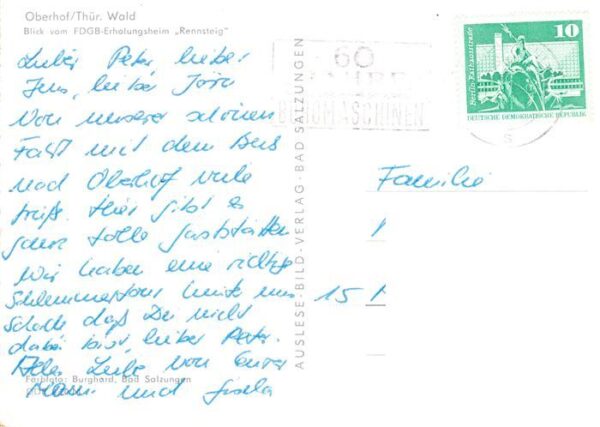 Oberhof/Thür. Wald
Blick vom FDGB-Erholungsheim „Rennsteig"
Lieber Peter lieber
Jens, lieber Jörn
Von unserer schönen
Fahrt mit dem Bus
nach Oberhof viele
Grüße. Hier gibt es
ganz tolle Gaststätten
Wir haben eine richtige
Schlemmertour hinter uns
Schade daß Du nicht
dabei bist, lieber Peter.
Alles Liebe von Eurer
und Gisela
Farbfoto: Burghard, Bad Salzungen
AUSLESE-BILD-VERLAG-BAD SALZUNGEN
60
JAHRE
BÜROMASCHINEN
10
Berlin, Rathausstraße
DEUTSCHE DEMOKRATISCHE REPUBLIK
S
Familie
15